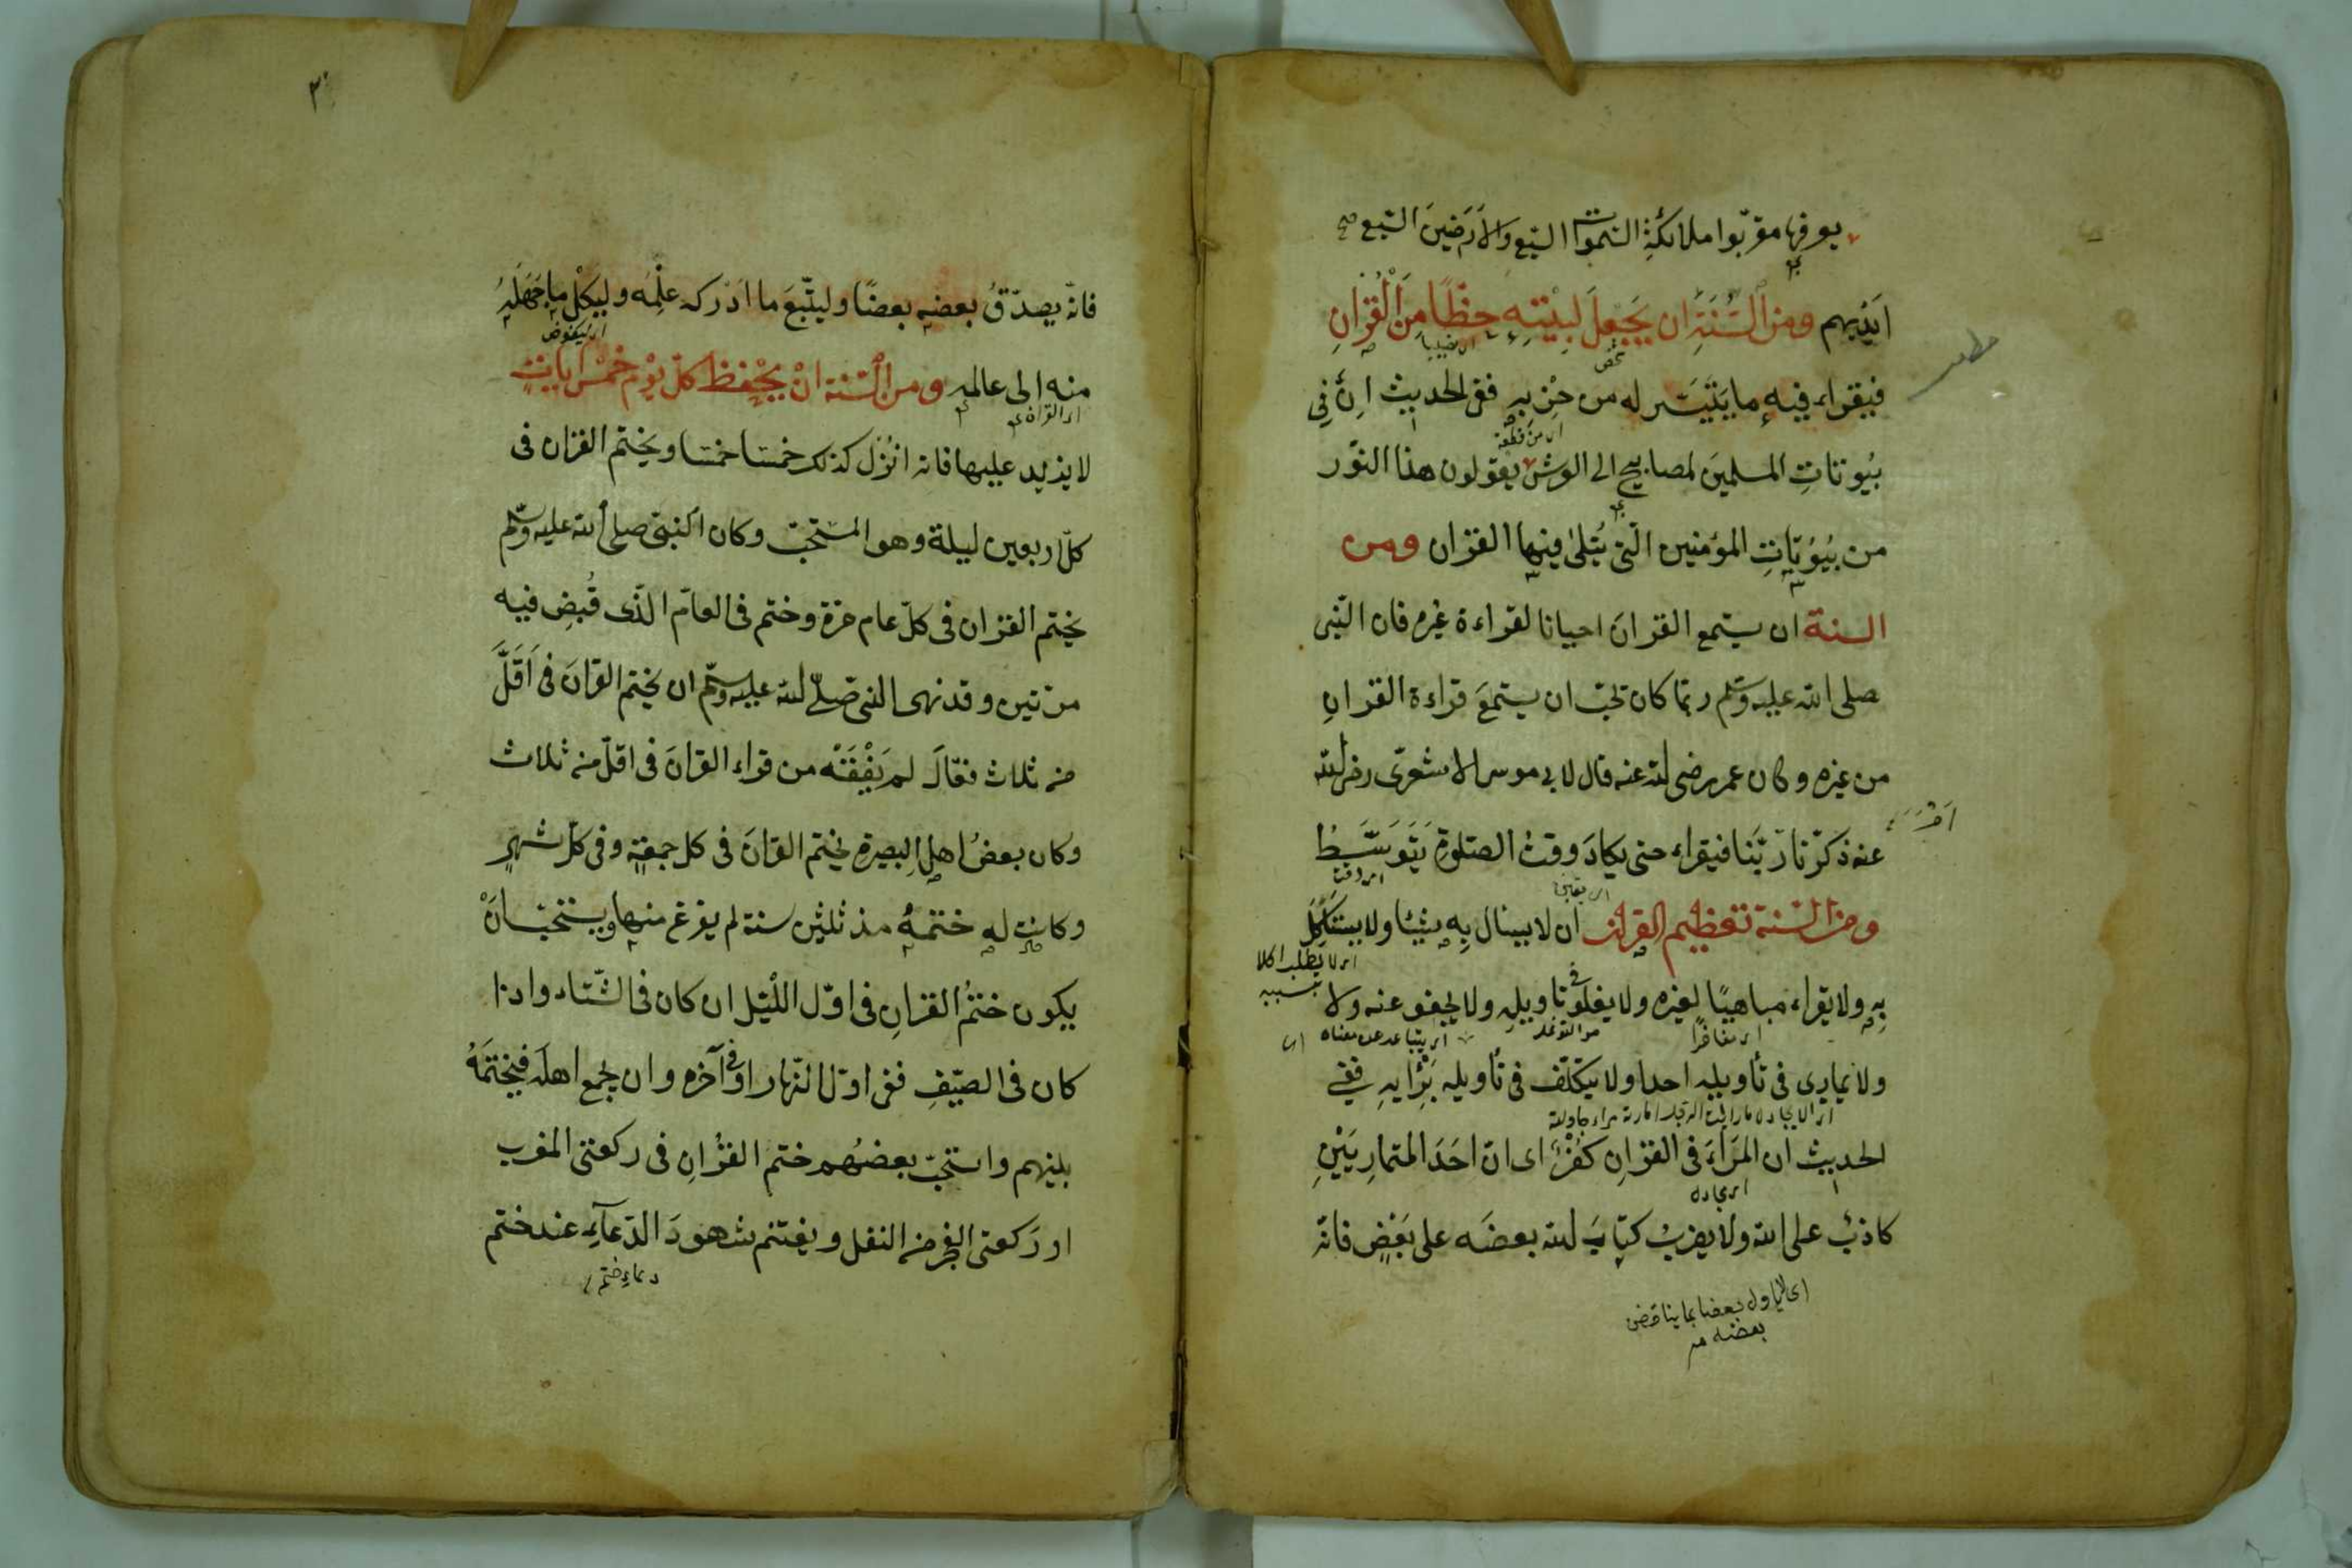 يعرفها مقربوا ملائكة السموات السبع والارضين السبع صح
ايديهم ومن السنة ان يجعل لبيته حظا من القران
اى نصيبا
فيقراء فيه ما يتيسر له من حزبه ففى الحديث ان فى
اى من قطعة
بيوتات المسلمين لمصابيح الى العرش يقولون هذا النور
من بيوتات المؤمنين التى يتلى فيها القران ومن
السنة ان يستمع القران احيانا لقراءة غيره فان النبى
صلى الله عليه وسلم ربما كان يحب ان يستمع قراءة القران
من غيره وكان عمر رضى الله عنه قال لابى موسى الاشعرى رضى الله
عنه ذكرنا ربنا فيقراء حتى يكاد وقت الصلوة يتوسط
ومن السنة تعظيم القران ان لا ينال به شيئا ولا يستأكل
اى لا يطلب اكلا
بسببه
به ولا يقراء مباهيا لغيره ولا يغلو فى تاويله ولا يجفو عنه ولا
اى مفاخرا
اى يتباعد عن معناه
ولا يمارى فى تأويله احدا ولا يتكلف فى تأويله برأيه ففى
الحديث ان المراء فى القران كفر اى ان احد المتماريين
اى مجادله
كاذب على الله ولا يضرب كتاب الله بعضه على بعض فانه
اى لا يأول بعضا بما يناقض
بعضه
٣
فانه يصدق بعضه بعضا وليتبع ما ادركه علمه وليكل ما جهله
اى ليفوض
منه الى عالمه ومن السنة ان يحفظ كل يوم خمس ايات
اى القران
لا يزيد عليها فانه انزل كذلك خمسا خمسا ويختم القران فى
كل اربعين ليلة وهو المستحب وكان النبى صلى الله عليه وسلم
يختم القران فى كل عام مرة وختم فى العام الذى قبض فيه
مرتين وقد نهى النبى صلى الله عليه وسلم ان يختم القران فى اقل
من ثلاث فقال لم يفقه من قراء القران فى اقل من ثلاث
وكان بعض اهل البصرة يختم القران فى كل جمعة وفى كل شهر
وكانت له ختمة مذ ثلثين سنة لم يفرغ منها ويستحب ان
يكون ختم القران فى اول الليل ان كان فى الشتاء واذا
كان فى الصيف ففى اول النهار او فى آخره وان يجمع اهله فيختمه
بينهم واستحب بعضهم ختم القران فى ركعتى المغرب
او ركعتى الفجر من النفل ويغتنم شهود الدعاء عند ختم
دعاء ختم